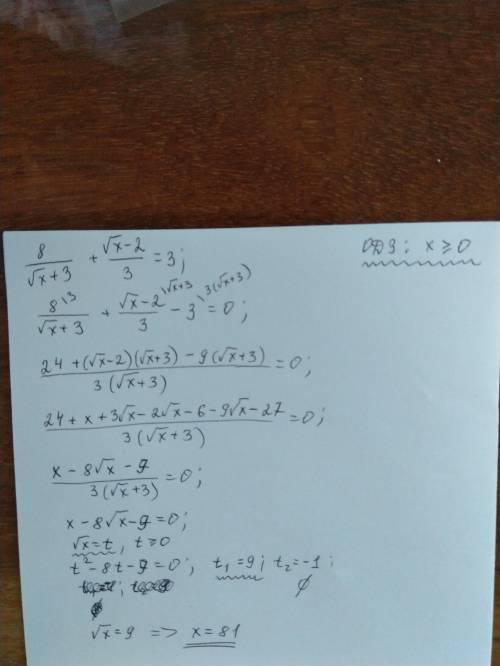 8/(√x+3) + (√x-2)/3 = 3; ОДЗ: x ≥ 0
8\3/(√x+3) + (√x-2)\√x+3/3 - 3\3(√x+3) = 0;
(24+(√x-2)(√x+3)-9(√x+3))/(3(√x+3)) = 0;
(24+x+3√x-2√x-6-9√x-27)/(3(√x+3)) = 0;
(x-8√x-9)/(3(√x+3)) = 0;
x-8√x-9=0;
√x=t, t≥0
t²-8t-9=0; t₁=9; t₂=-1;
∅
√x=9 => x=81